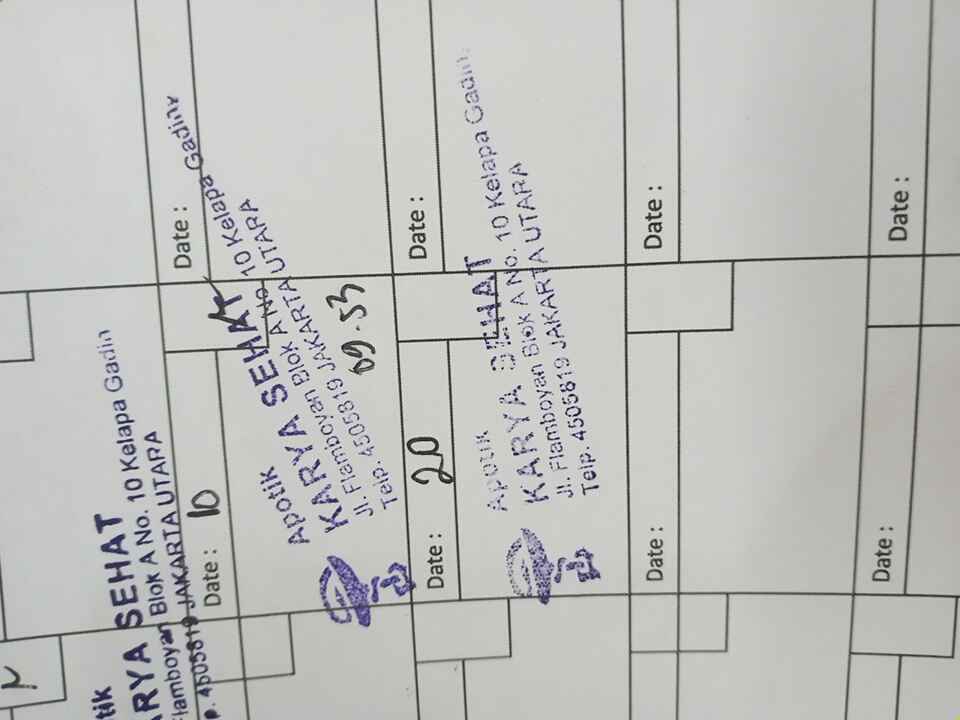 Apotik
KARYA SEHAT
Jl. Flamboyan Blok A No. 10 Kelapa Gadin
Telp. 4505819 JAKARTA UTARA
Date : 10
Date :
Apotik
KARYA SEHAT
Jl. Flamboyan Blok A No. 10 Kelapa Gading
Telp. 4505819 JAKARTA UTARA
09.53
Date : 20
Date :
Apotik
KARYA SEHAT
Jl. Flamboyan Blok A No. 10 Kelapa Gadin
Telp. 4505819 JAKARTA UTARA
Date :
Date :
Date :
Date :